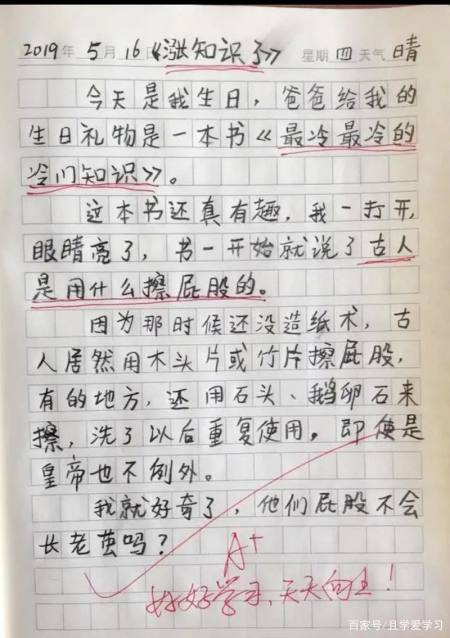 2019年5月16日《涨知识了》 星期四天气晴
今天是我生日，爸爸给我的
生日礼物是一本书《最冷最冷的
冷门知识》。
这本书还真有趣，我一打开，
眼睛亮了，书一开始就说了古人
是用什么擦屁股的。
因为那时候还没造纸术，古
人居然用木头片或竹片擦屁股，
有的地方，还用石头、鹅卵石来
擦，洗了以后重复使用。即使是
皇帝也不例外。
我就好奇了，他们屁股不会
长老茧吗？
A+
好好学习，天天向上！
百家号/且学爱学习